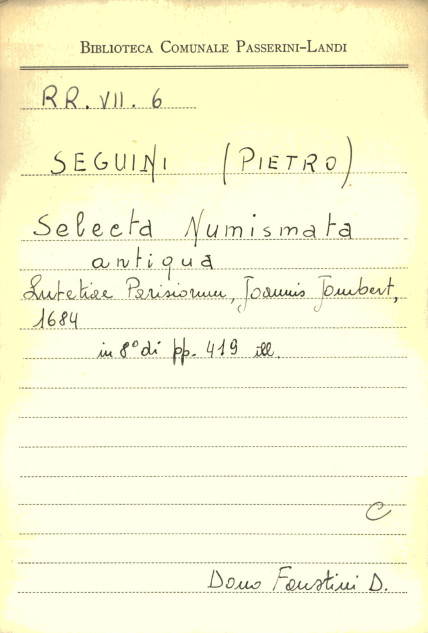 BIBLIOTECA COMUNALE PASSERINI-LANDI
RR. VII. 6
SEGUINI (PIETRO)
Selecta Numismata
antiqua
Lutetiae Parisiorum, Joannis Jombert,
1684
in 8° di pp. 419 ill.
C
Dono Faustini D.